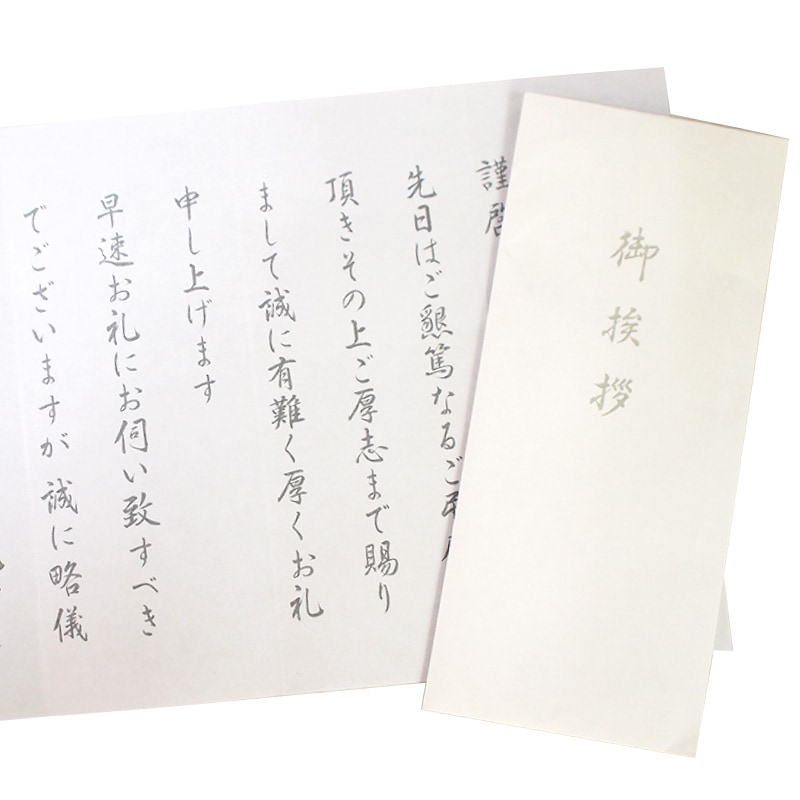 謹啓
先日はご懇篤なるご弔
頂きその上ご厚志まで賜り
まして誠に有難く厚くお礼
申し上げます
早速お礼にお伺い致すべき
でございますが誠に略儀
御挨拶